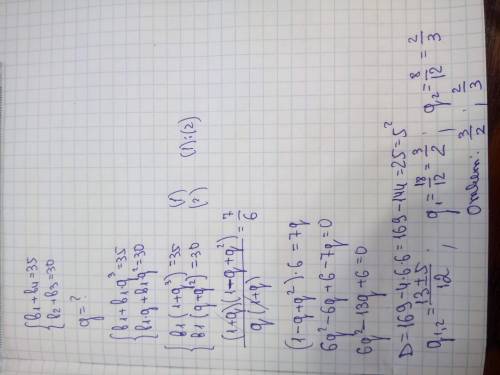 {b1+b4=35
{b2+b3=30
q=?
{b1+b1q³=35
{b1·q+b1q²=30
{b1(1+q³)=35 (1)
{b1(q+q²)=30 (2) (1):(2)
(1+q)(1-q+q²)/q(1+q)=7/6
(1-q+q²)·6=7q
6q²-6q+6-7q=0
6q²-13q+6=0
D=169-4·6·6=169-144=25=5²
q1,2=13±5/12, q1=18/12=3/2; q2=8/12=2/3
Ответ: 3/2, 2/3